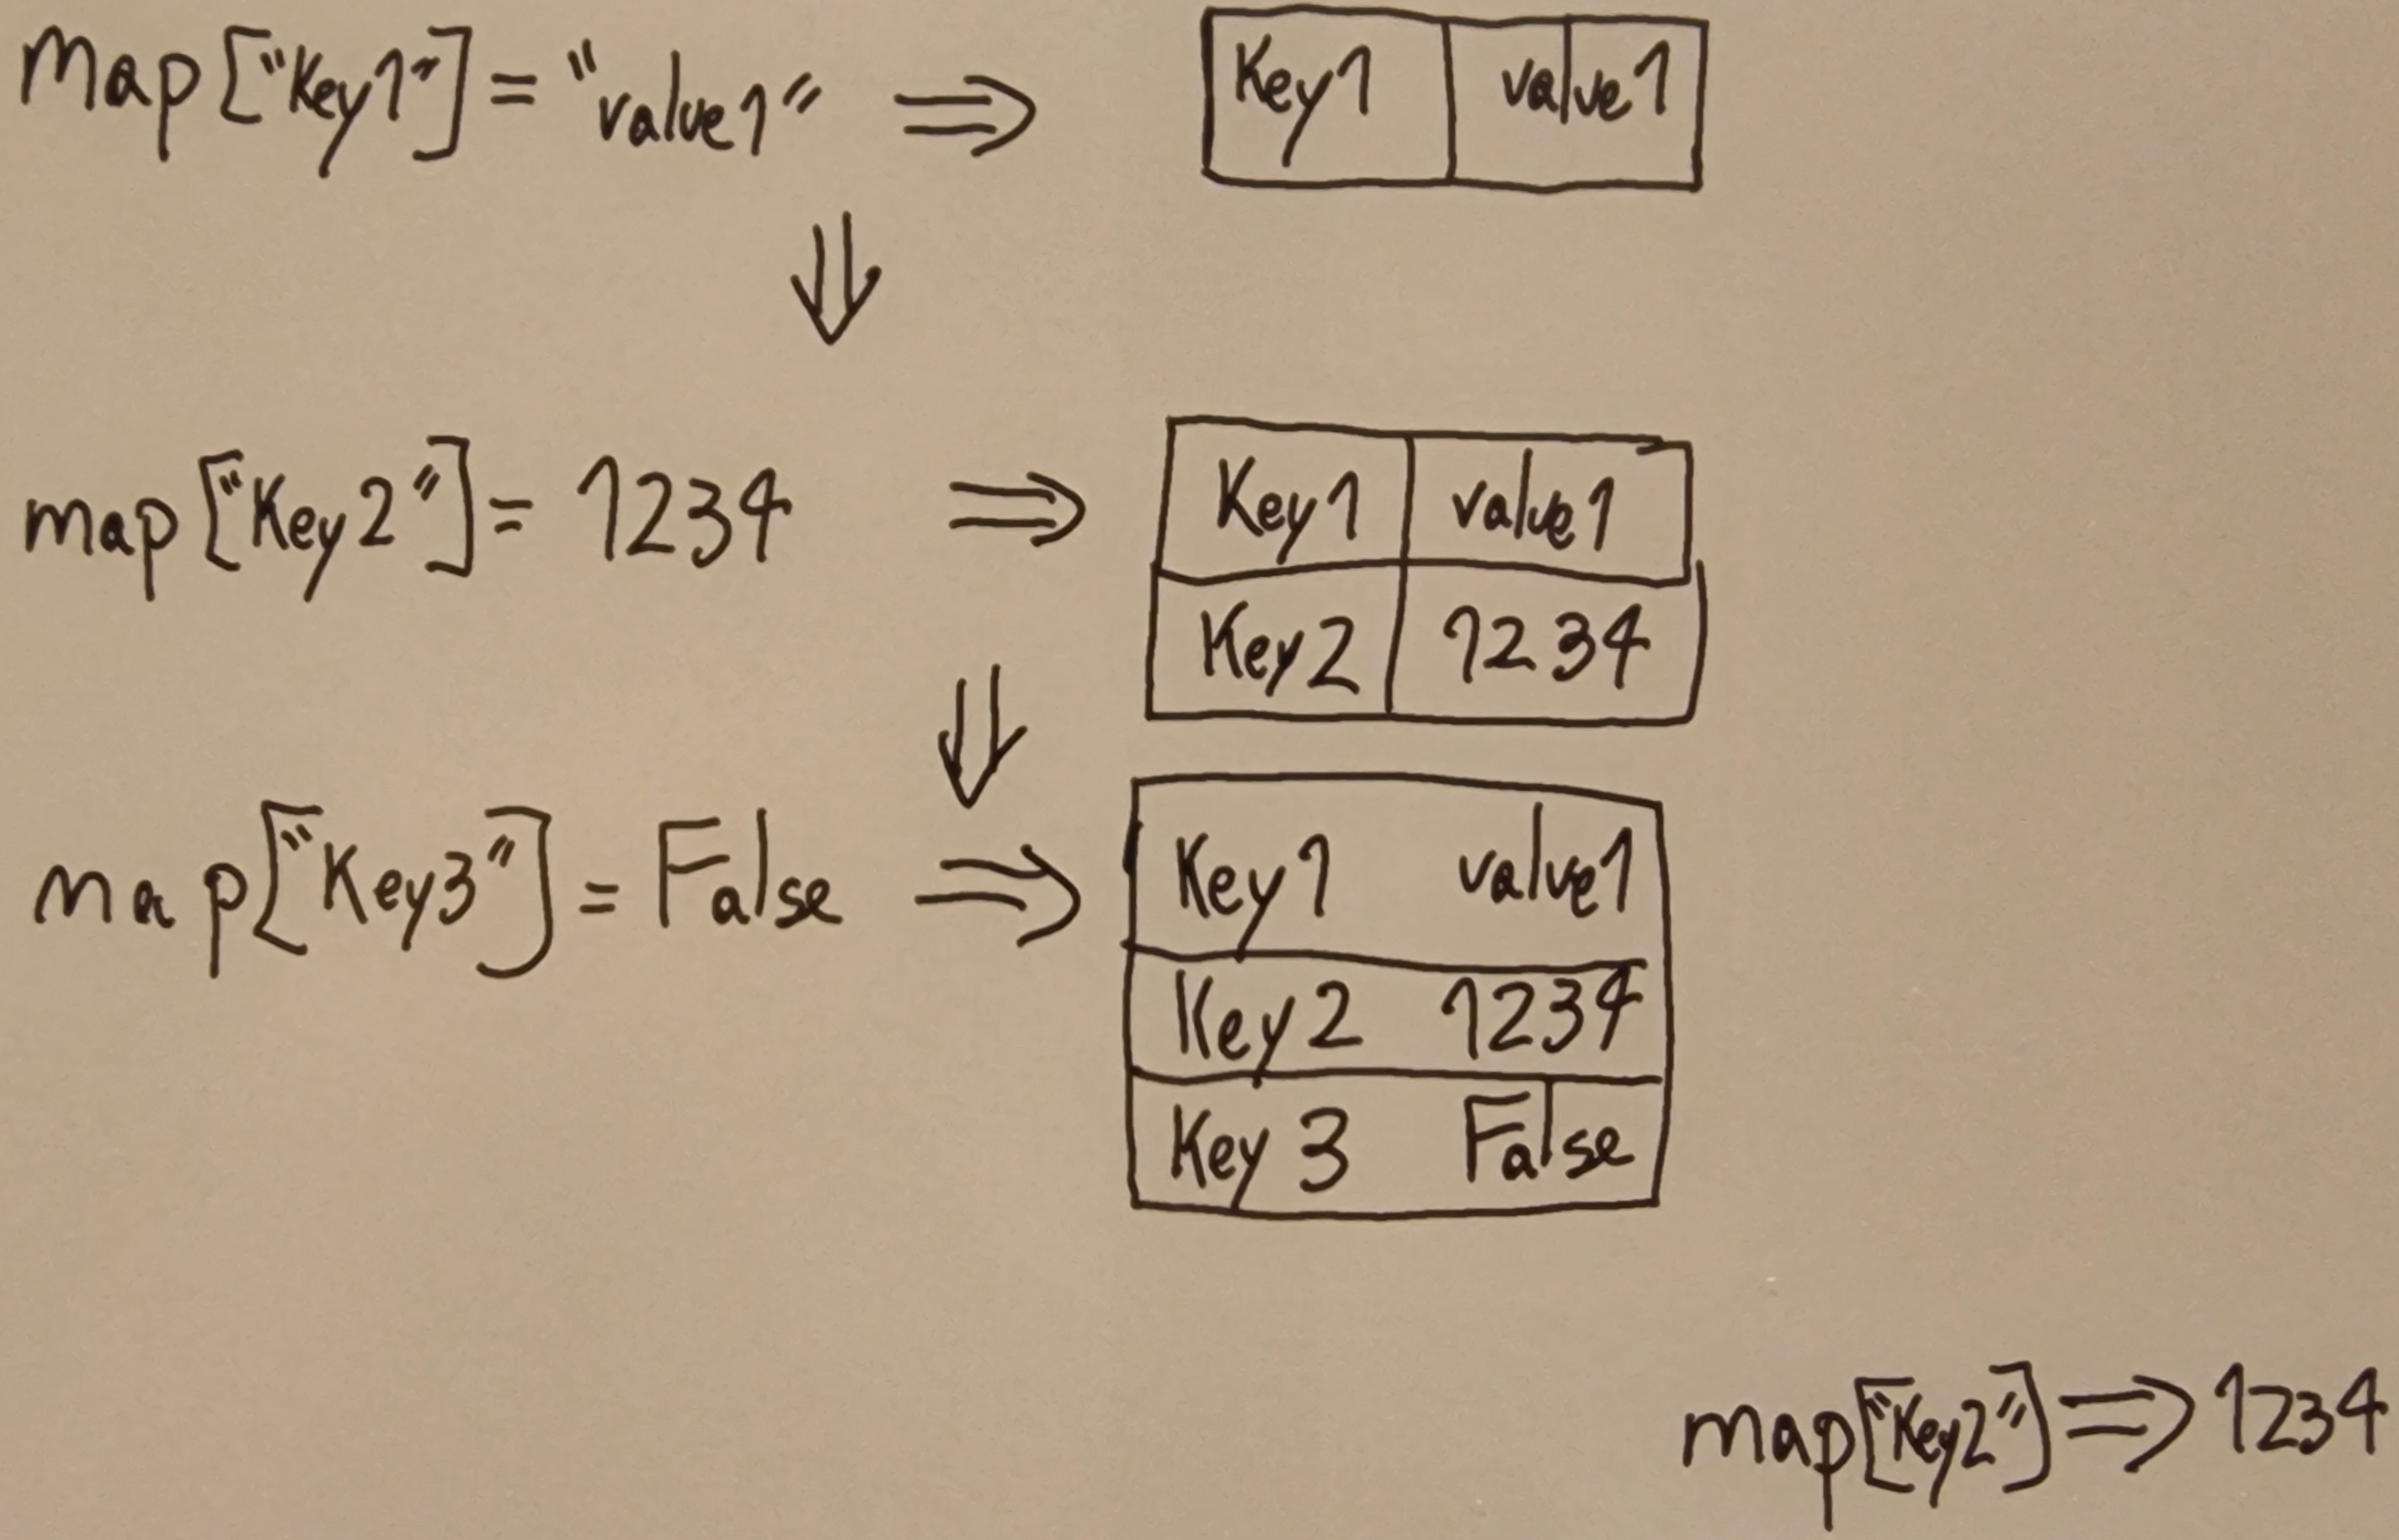 Map["Key1"]= "value1" ⇒ Key1 value1
map["Key2"]= 1234 ⇒ Key1 value1
Key2 1234
map["Key3"]= False ⇒ Key1 value1
Key2 1234
Key3 False
map["Key2"] ⇒ 1234